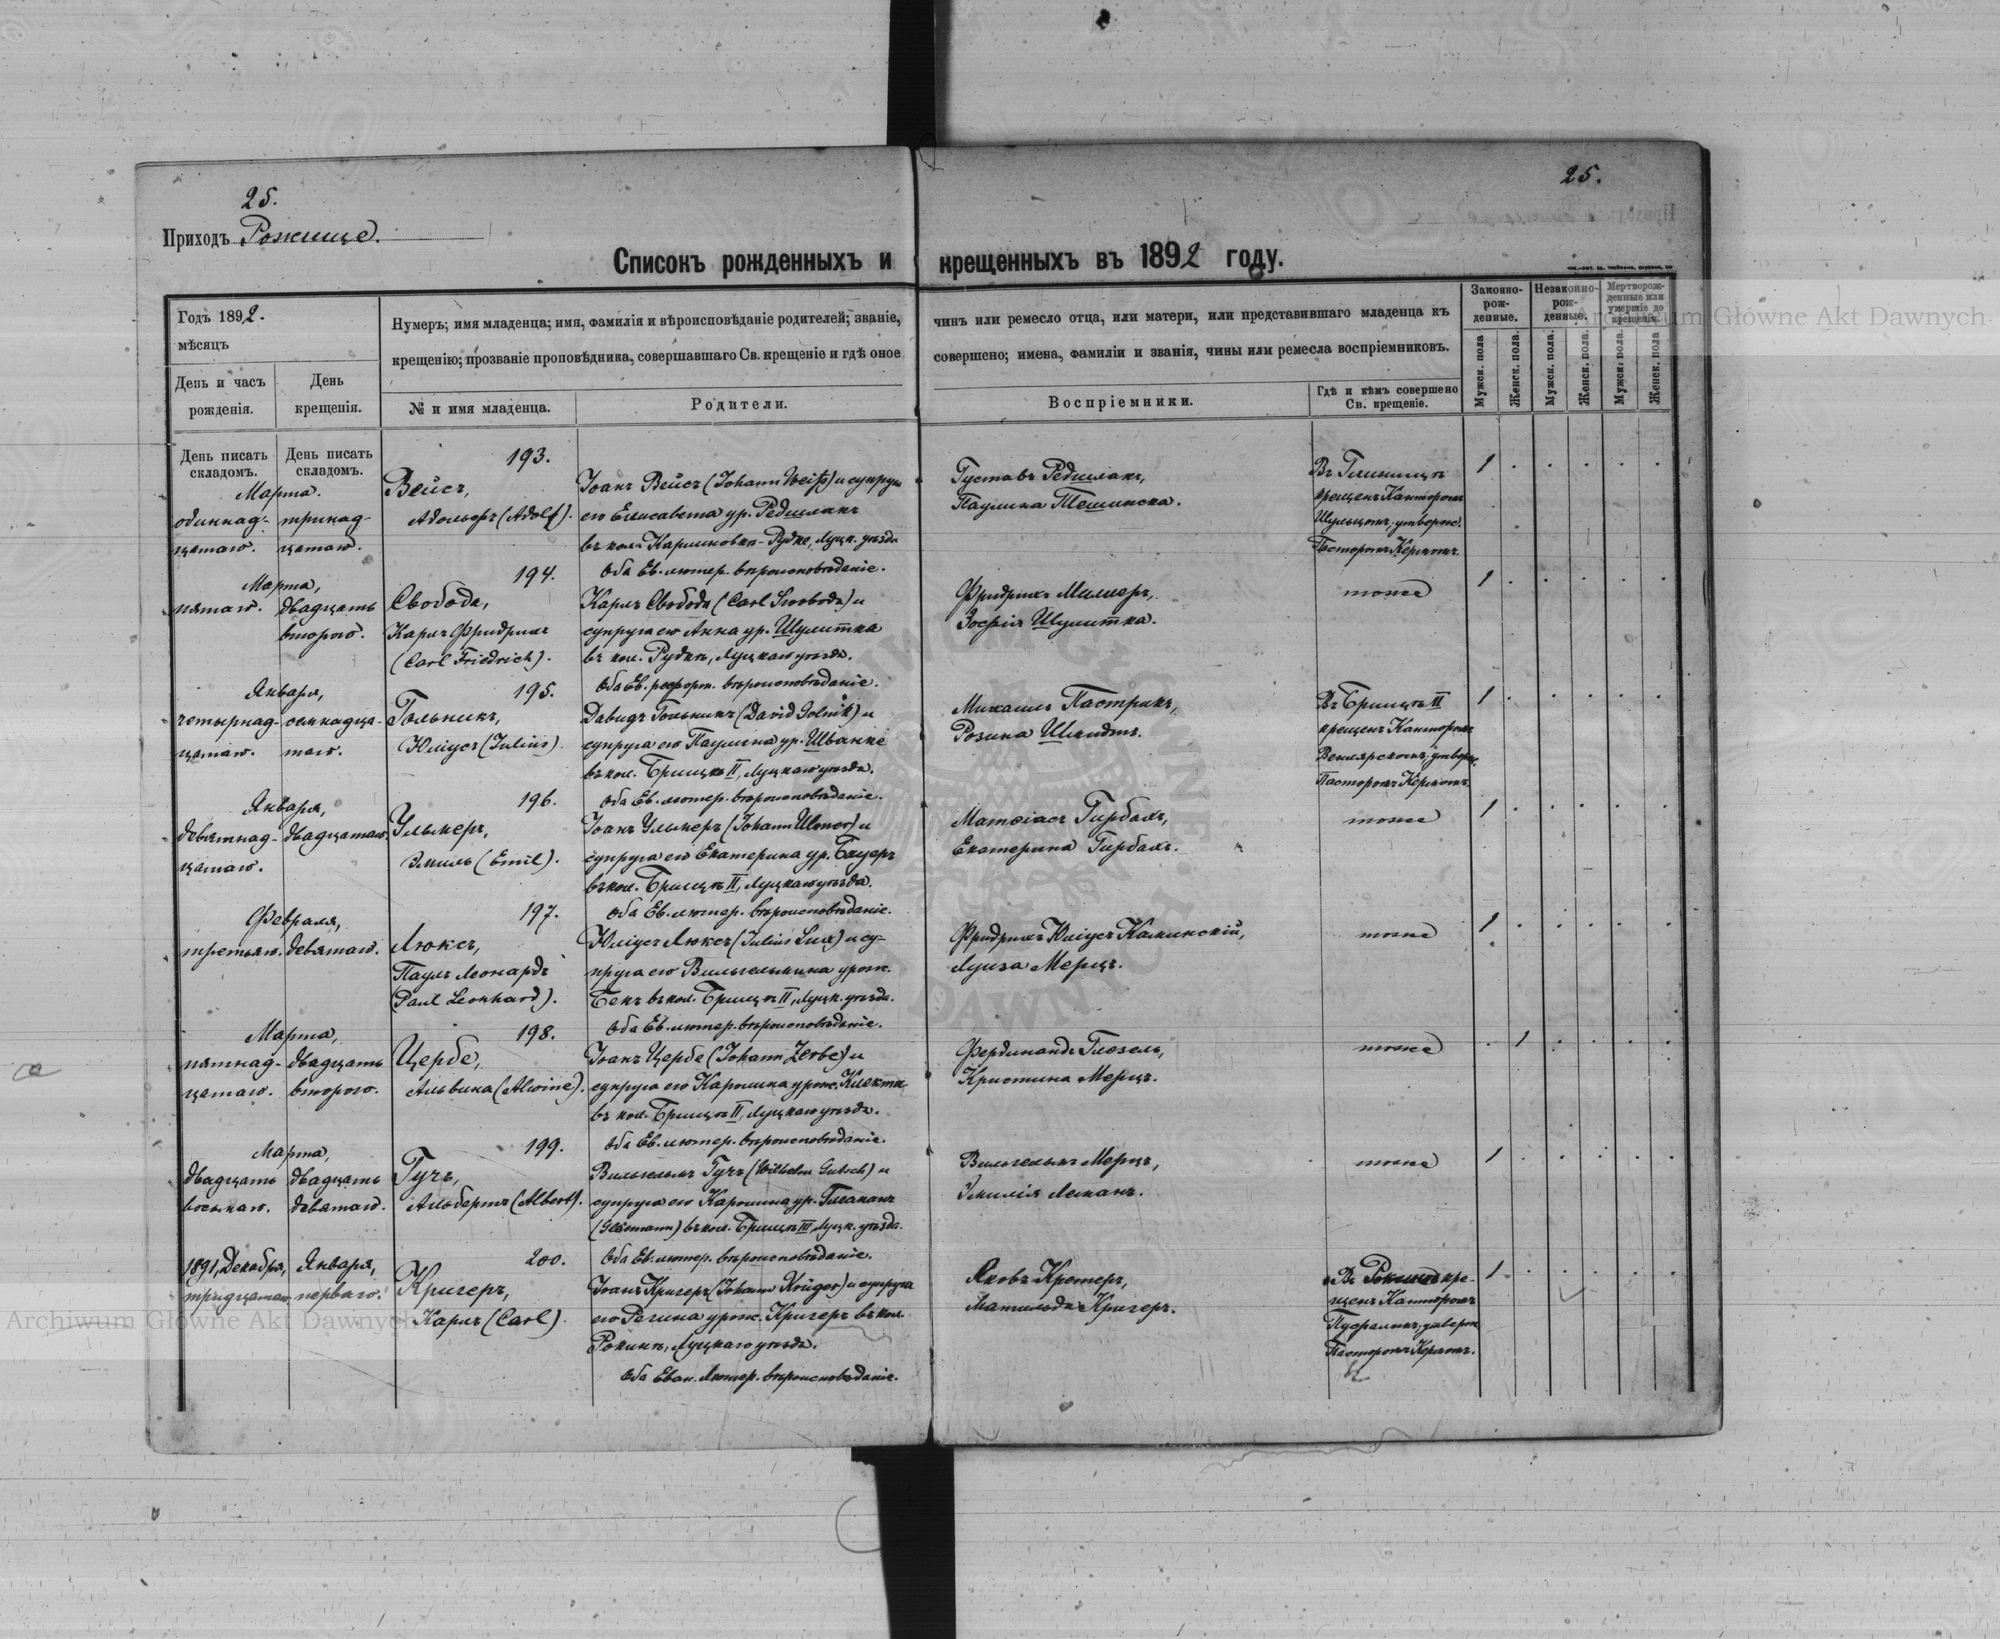 25.
25.
Приходъ Рожище.
Списокъ рожденныхъ и крещенныхъ въ 1892 году.
Годъ 1892.
мѣсяцъ
Нумеръ; имя младенца; имя, фамилія и вѣроисповѣданіе родителей; званіе, чинъ или ремесло отца, или матери, или представившаго младенца къ
крещенію; прозваніе проповѣдника, совершавшаго Св. крещеніе и гдѣ оное совершено; имена, фамиліи и званія, чины или ремесла воспріемниковъ.
Законно-
рож-
денные.
Незаконно-
рож-
денные.
Мертворож-
денные или
умершіе до
крещенія.
День и часъ
рожденія.
День
крещенія.
№ и имя младенца.
Родители.
Воспріемники.
Гдѣ и кѣмъ совершено
Св. крещеніе.
Мужск. пола
Женск. пола.
Мужск. пола.
Женск. пола.
Мужск. пола.
Женск. пола
День писать
складомъ.
День писать
складомъ.
193.
Марта.
одиннад-
цатаго.
тринад-
цатаго.
Вейсъ,
Адольфъ (Adolf).
Іоанъ Вейсъ (Johann Weiß) и супруга
его Елисавета ур. Редшлакъ
въ кол. Каришовка-Рудке, Луцк. уѣзда
Оба Ев. лютер. вѣроисповѣданіе.
Густавъ Редшлакъ,
Паулина Тешинска.
Въ
крещенъ Канторомъ
Шульцомъ, утверж.
Пасторомъ Кермомъ.
1
194.
Марта,
пятаго.
двадцать
второго.
Свобода,
Карлъ Фридрихъ
(Carl Friedrich).
Карлъ Свобода (Carl Swoboda) и
супруга его Анна ур. Шулитка
въ кол. Рудкѣ, Луцкаго уѣзда.
Оба Ев. реформ. вѣроисповѣданіе.
Фридрихъ Миллеръ,
Зофія Шулитка.
тоже
1
195.
Января,
четырнад-
цатаго.
семнадца-
таго.
Гольникъ,
Юліусъ (Julius).
Давидъ Гольникъ (David Golnik) и
супруга его Паулина ур. Шванке
въ кол. Брищѣ II, Луцкаго уѣзда.
Оба Ев. лютер. вѣроисповѣданіе.
Михаилъ Пастрикъ,
Розина Шмидтъ.
Въ Брищѣ II
крещенъ Канторомъ
утверж.
Пасторомъ Кермомъ.
1
196.
Января,
девятнад-
цатаго.
двадцатаго.
Ульмеръ,
Эмиль (Emil).
Іоанъ Ульмеръ (Johann Ulmer) и
супруга его Екатерина ур. Бауеръ
въ кол. Брищѣ II, Луцкаго уѣзда.
Оба Ев. лютер. вѣроисповѣданіе.
Матѳіасъ Гирбахъ,
Екатерина Гирбахъ.
тоже
1
197.
Февраля,
третьяго.
девятаго.
Люксъ,
Паулъ Леонардъ
(Paul Leonhard).
Юліусъ Люксъ (Julius Lux) и су-
пруга его Вильгельмина урож.
Бекъ въ кол. Брищѣ II, Луцк. уѣзда.
Оба Ев. лютер. вѣроисповѣданіе.
Фридрихъ Юліусъ Каминскій,
Луиза Мерцъ.
тоже
1
198.
Марта,
пятнад-
цатаго.
двадцать
второго.
Цербе,
Альвина (Alwine).
Іоанъ Цербе (Johann Zerbe) и
супруга его Каролина урож.
въ кол. Брищѣ II, Луцкаго уѣзда.
Оба Ев. лютер. вѣроисповѣданіе.
Фердинандъ Глезель,
Кристина Мерцъ.
тоже
1
199.
Марта,
двадцать
восьмаго.
двадцать
девятаго.
Гучъ,
Альбертъ (Albert).
Вильгельмъ Гучъ (Wilhelm Gutsch) и
супруга его Каролина ур.
въ кол. Брищѣ III, Луцк. уѣзда.
Оба Ев. лютер. вѣроисповѣданіе.
Вильгельмъ Мерцъ,
Эмилія Леманъ.
тоже
1
200.
1891, Декабря,
тридцатаго.
Января,
перваго.
Кригеръ,
Карлъ (Carl).
Іоанъ Кригеръ (Johann Krüger) и супруга
его Регина урож. Кригеръ въ кол.
Рокинѣ, Луцкаго уѣзда.
Оба Еван. Лютер. вѣроисповѣданіе.
Яковъ Кремеръ,
Матильда Кригеръ.
Въ Рокинѣ кре-
щенъ Канторомъ
утверж.
Пасторомъ Кермомъ.
1
Archiwum Główne Akt Dawnych
Archiwum Główne Akt Dawnych